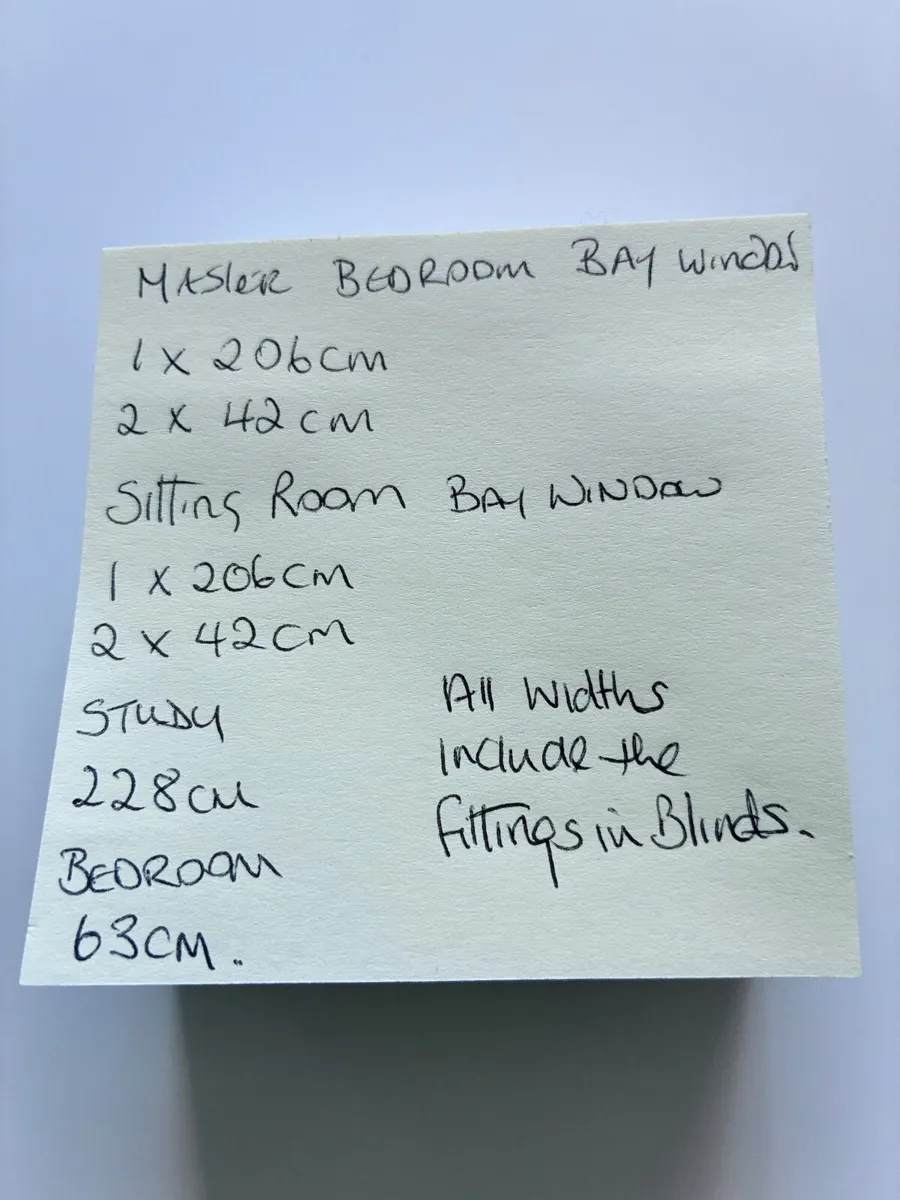 MASTER BEDROOM BAY Window
1 x 206cm
2 x 42cm
Sitting Room BAY WINDOW
1 x 206cm
2 x 42cm
STUDY
228cm
BEDROOM
63CM.
All widths
include the
fittings in Blinds.